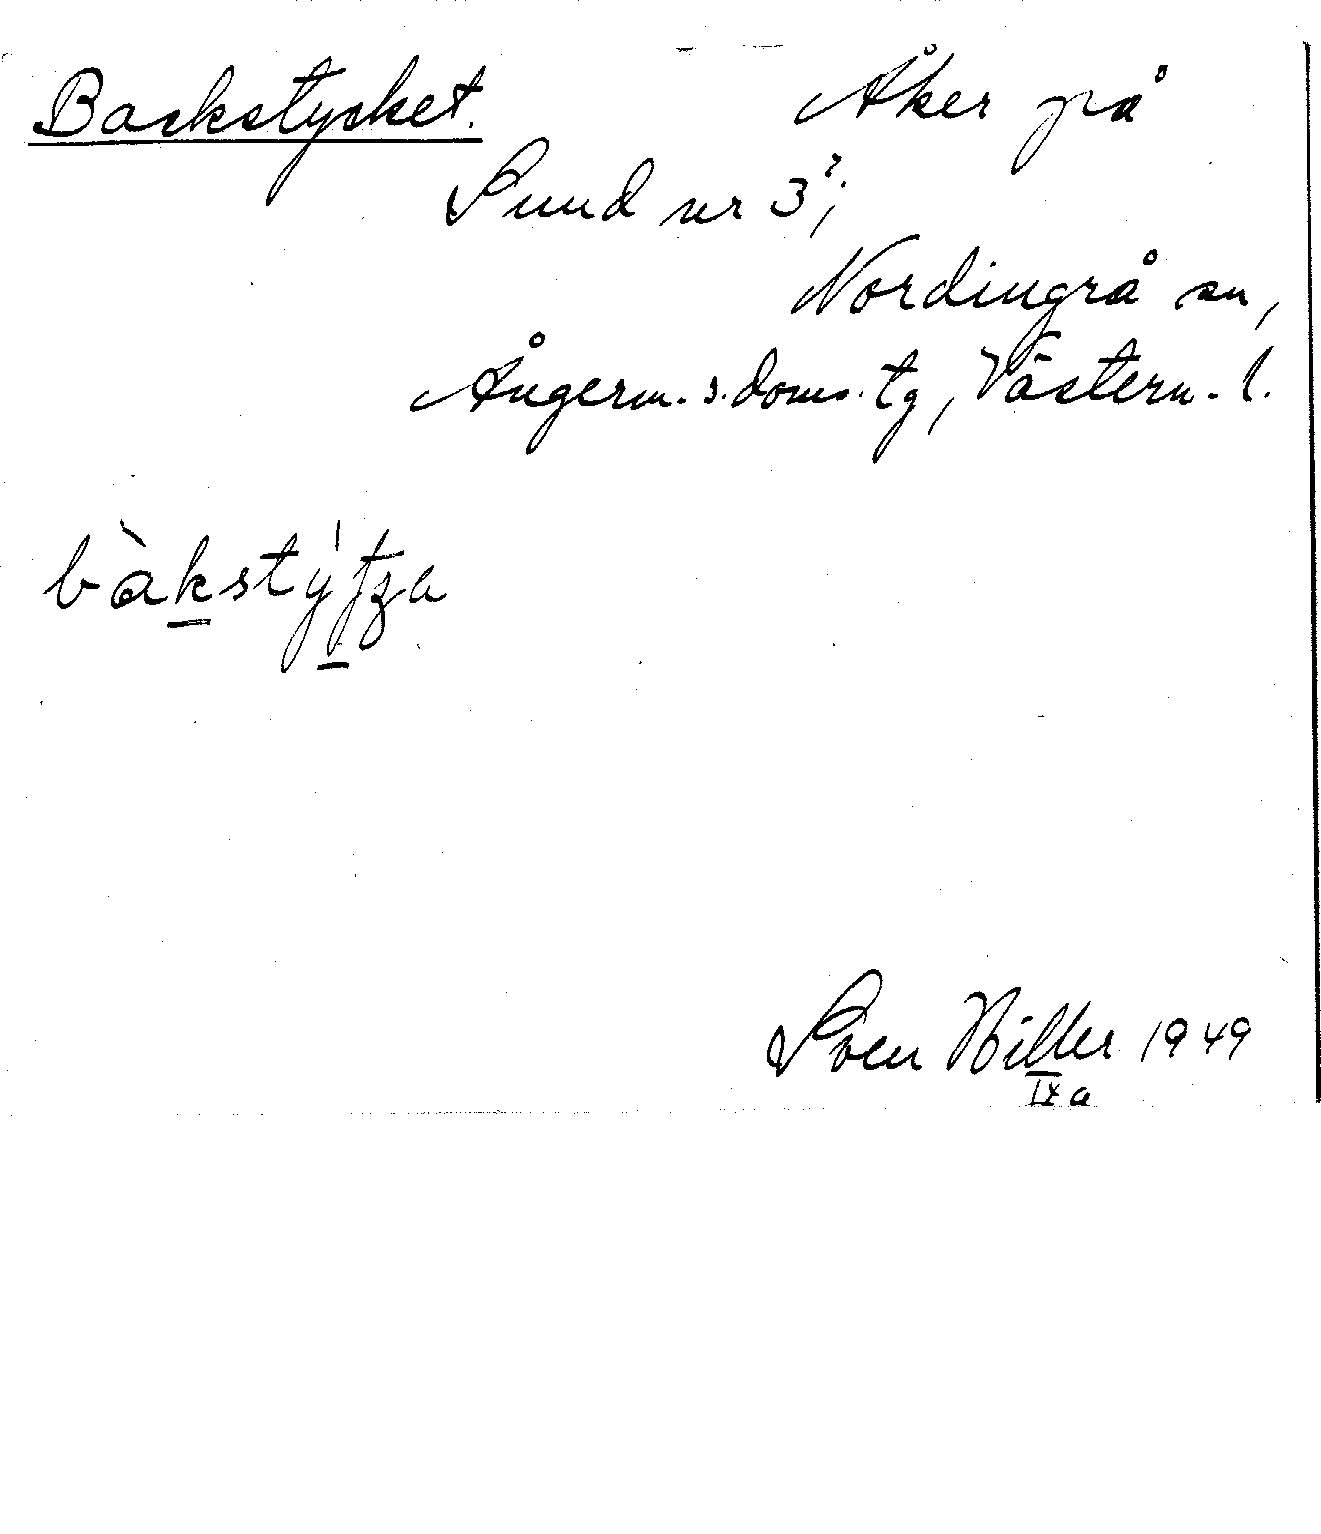 Backstycket. Åker på
Sund nr 3²;
Nordingrå sn,
Ångerm. s. doms. tg, Västern. l.
bàkstýtza
Sven Hiller 1949
IX a